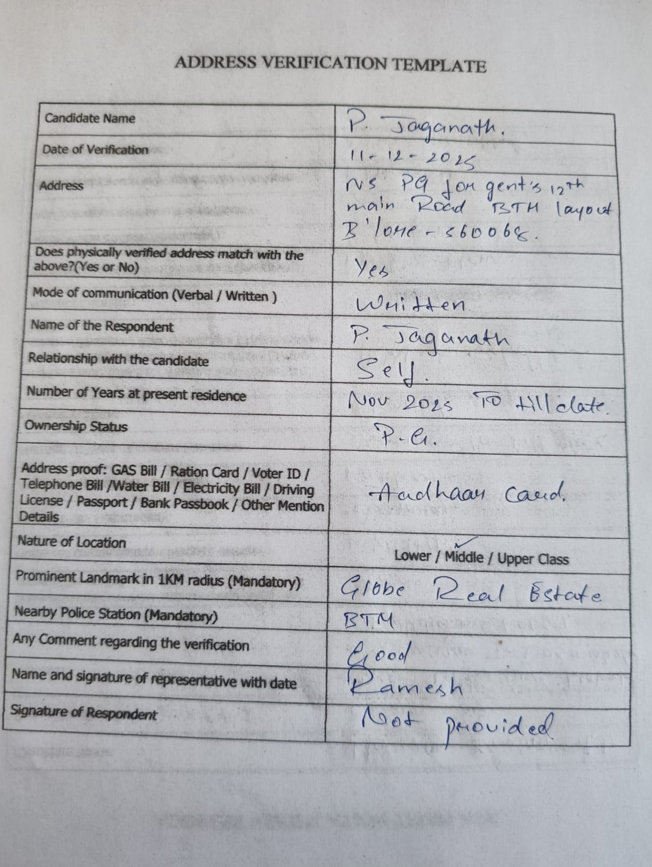 ADDRESS VERIFICATION TEMPLATE
Candidate Name
P. Jaganath.
Date of Verification
11-12-2025
Address
NS PG for gent's 12th
main Road BTM layout
B'lore - 560068.
Does physically verified address match with the
above?(Yes or No)
Yes
Mode of communication (Verbal / Written )
Written
Name of the Respondent
P. Jaganath
Relationship with the candidate
Self.
Number of Years at present residence
Nov 2025 To till date.
Ownership Status
P.G.
Address proof: GAS Bill / Ration Card / Voter ID /
Telephone Bill /Water Bill / Electricity Bill / Driving
License / Passport / Bank Passbook / Other Mention
Details
Aadhaar Card
Nature of Location
Lower / Middle / Upper Class
Prominent Landmark in 1KM radius (Mandatory)
Globe Real Estate
Nearby Police Station (Mandatory)
BTM
Any Comment regarding the verification
Good
Name and signature of representative with date
Ramesh
Signature of Respondent
Not provided